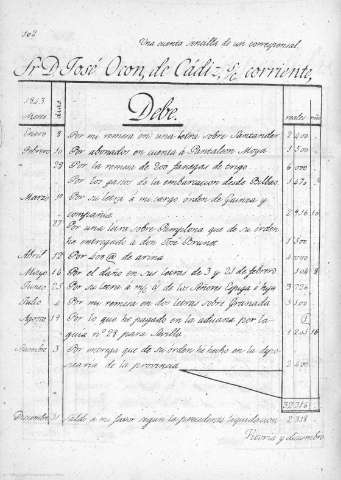 Una cuenta sencilla de un corresponsal
Sr. D. José Ocon, de Cádiz, c/c corriente,
Debe.
1853
Meses días reales ms
Enero 8 Por mi remesa en una letra sobre Santander 2 400
Febrero 10 Por abonados en cuenta á Pantaleon Moya 1 500
" 28 Por la remesa de 200 fanegas de trigo 6 000
Por los gastos de la embarcacion desde Bilbao
Marzo Por su letra á mi cargo orden de
compañia 16
27 Por una letra sobre Pamplona que de su orden
he entregado á don José Brunet 1 500
Abril 12 Por 400 @ de arina 4 000
Mayo 16 Por el daño en sus letras de 3 y 21 de febrero 8
Junio 25 Por su letra á m/c á de los Señores é hijo
Julio 4 Por mi remesa en dos letras sobre Granada
Agosto 19 Por lo que he pagado en la aduana por la
guia nº 28 para Sevilla 16
3 Por entrega que de su orden he hecho en la depo-
sitaria de la provincia 2 400
32 316
Diciembre 31 Saldo á mi favor segun la precedente liquidacion 2 318
Vitoria y diciembre